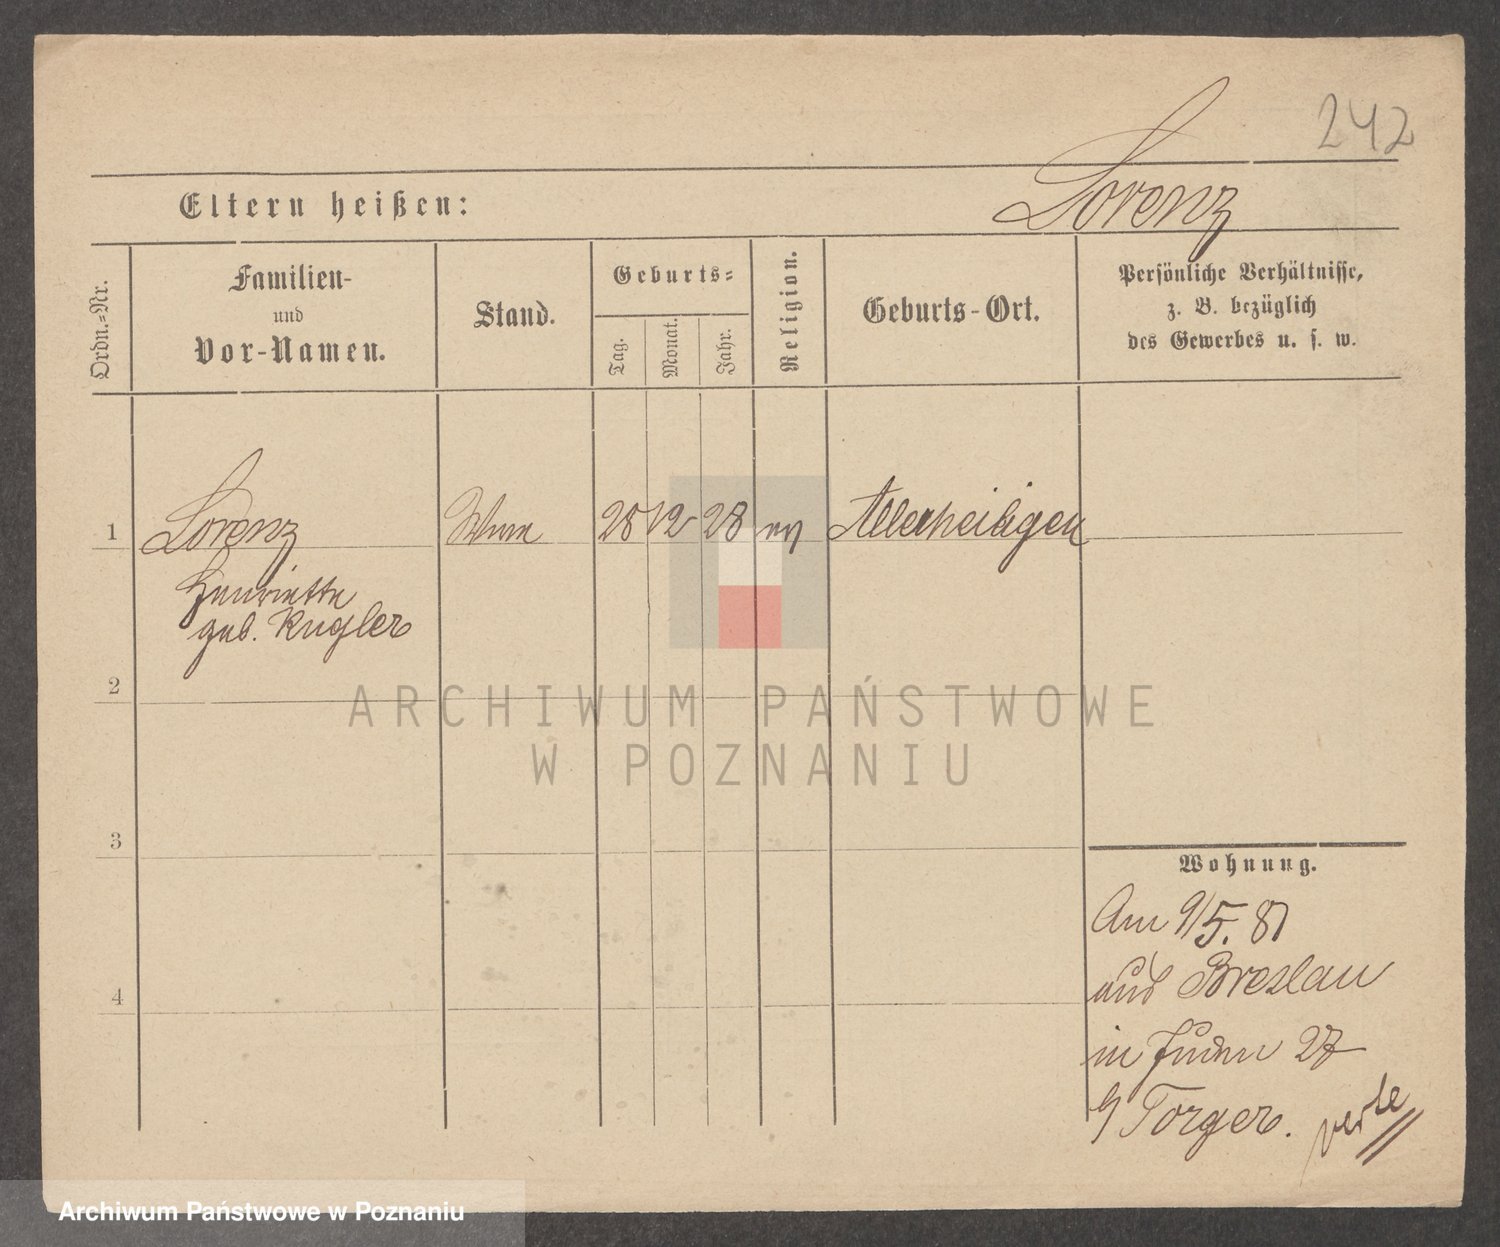 242
Lorenz
Eltern heißen:
Ordn.-Nr.
Familien-
und
Vor-Namen.
Stand.
Geburts-
Tag.
Monat.
Jahr.
Religion.
Geburts-Ort.
Persönliche Verhältnisse,
z. B. bezüglich
des Gewerbes u. s. w.
1
Lorenz 28 12 28 Allerheiligen
Henriette
geb. Kugler
2
ARCHIWUM PAŃSTWOWE
W POZNANIU
3
Wohnung.
Am 9/5. 81
aus Breslau
4
in Juden 27
b/ Torger.
Archiwum Państwowe w Poznaniu